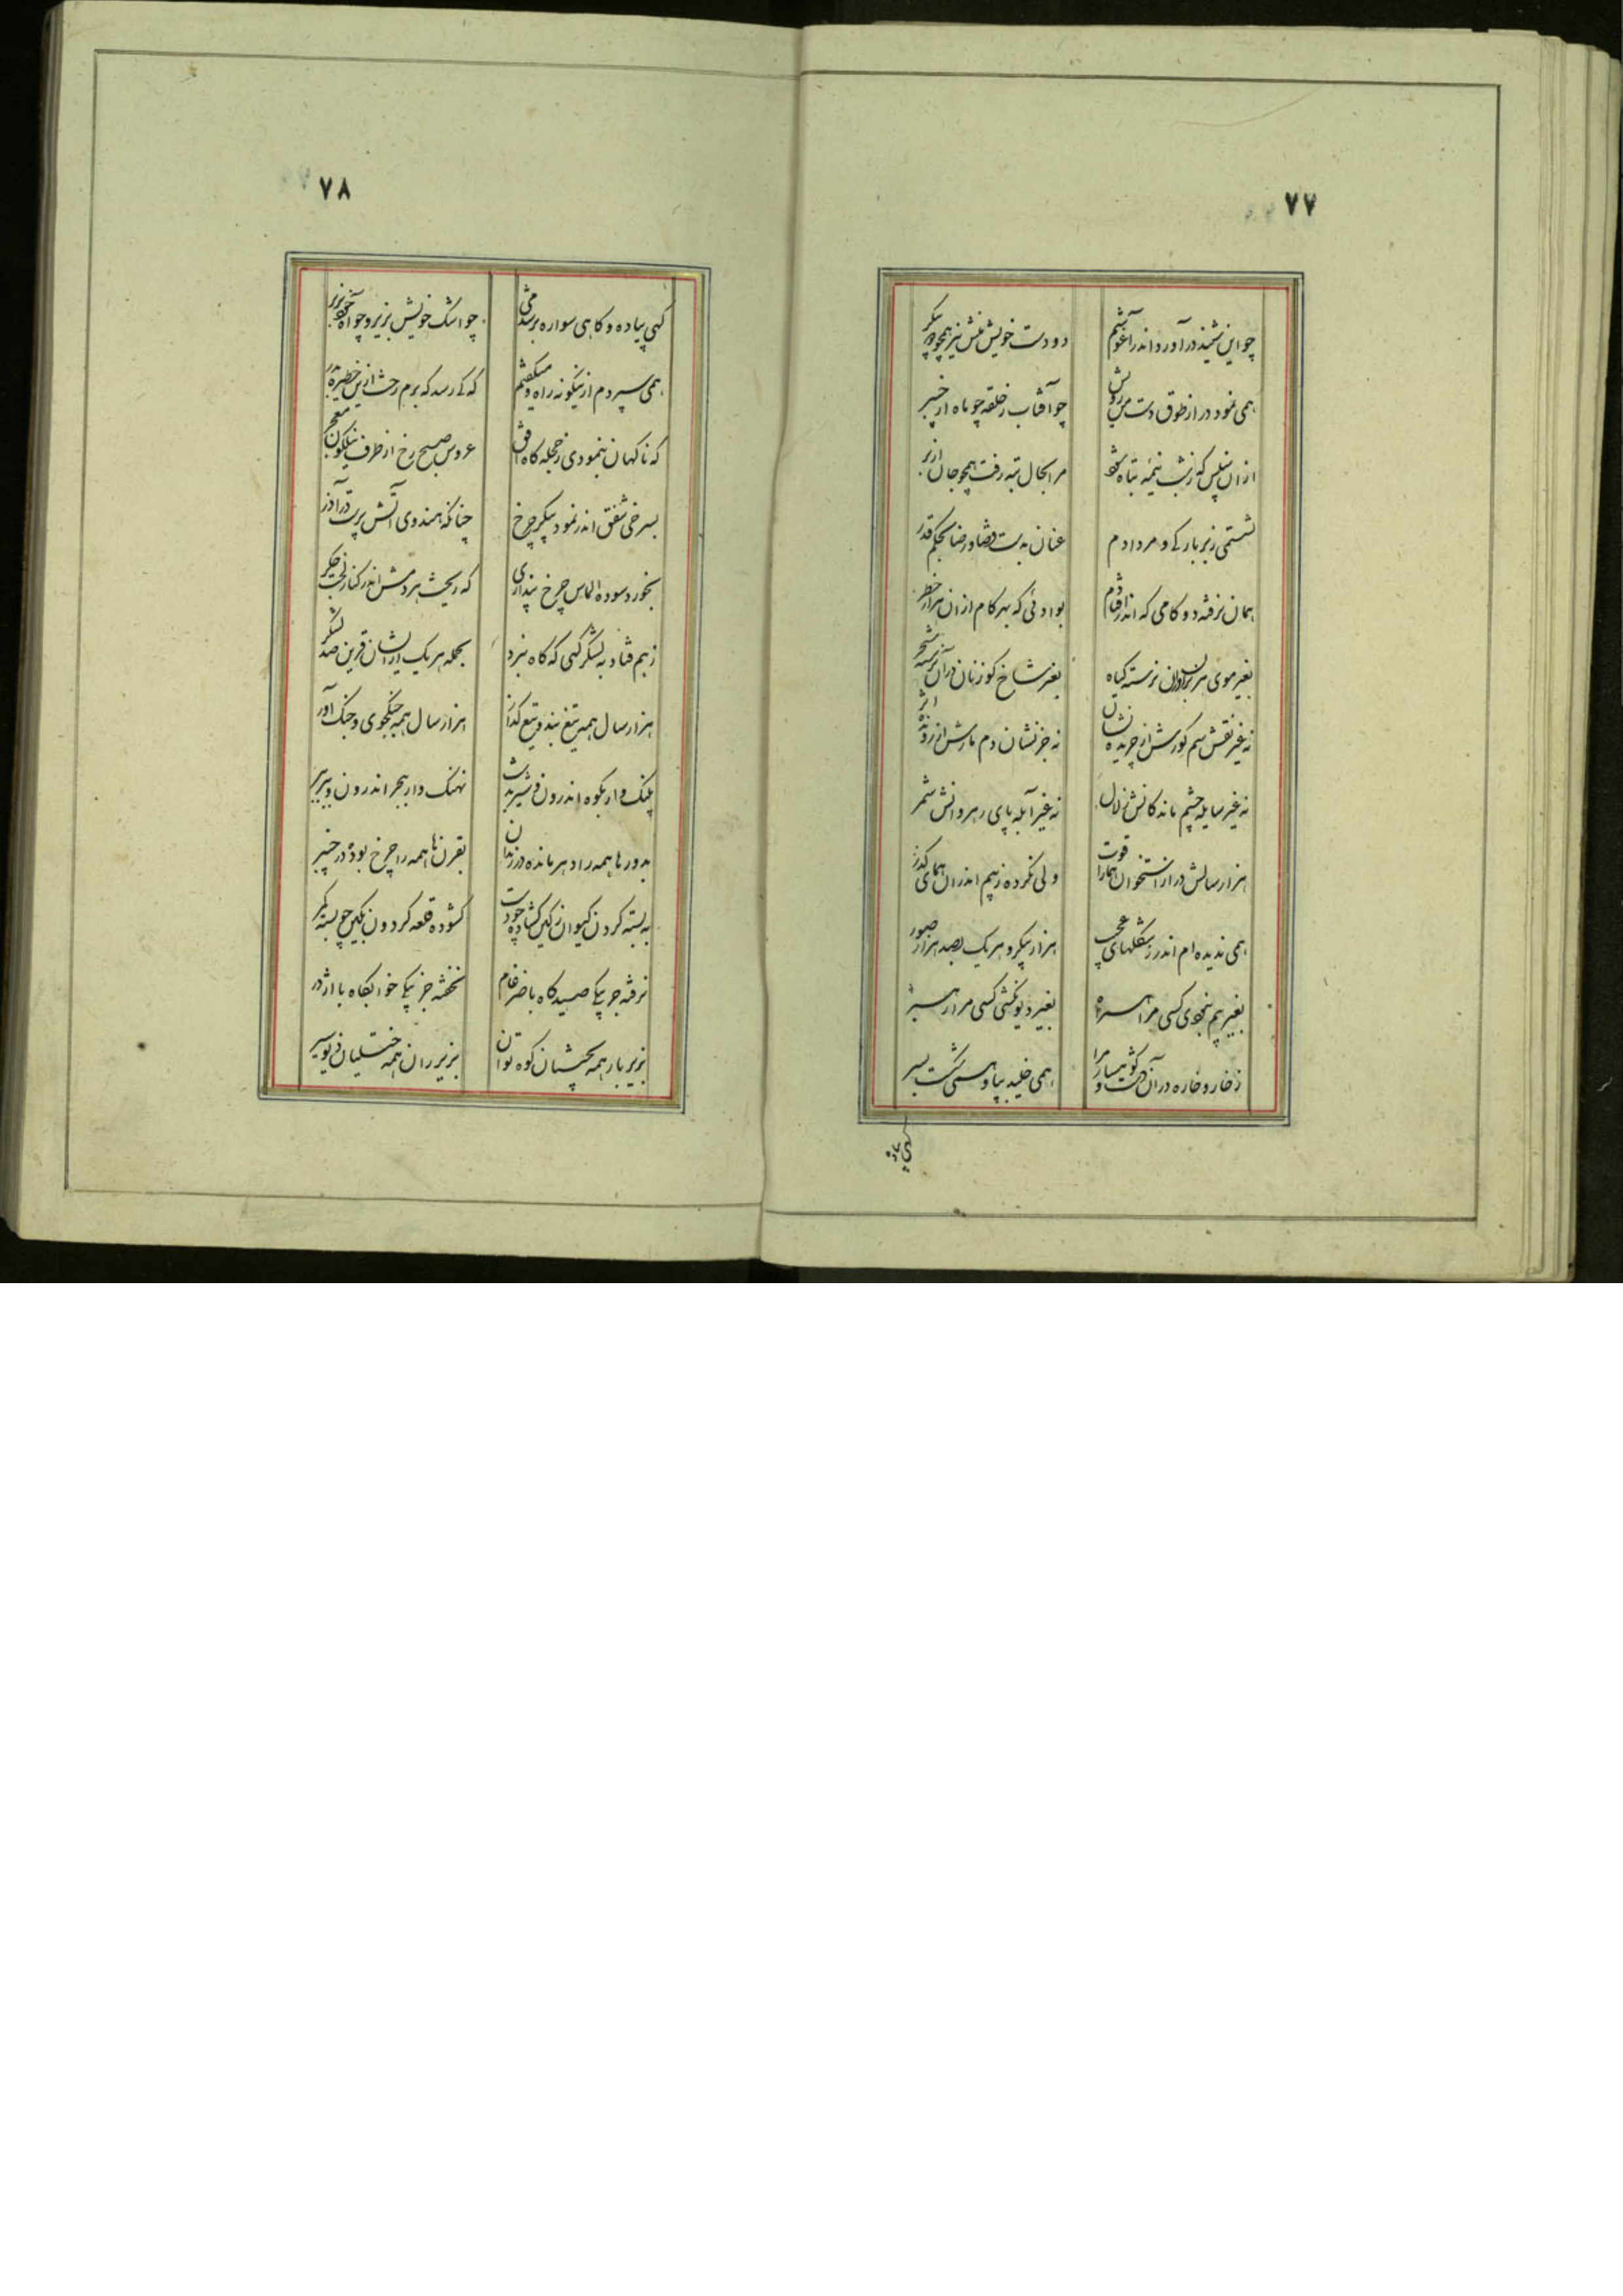 ۷۷
چو این شنید در آورد اندر آغوشم
دو دست خویش منش نیز همچو در پیکر
همی نمود در از طوق دست من رویش
چو آفتاب ز حلقه چو ماه از چنبر
ازان سپس که ز شب نیمه تباه شد
مرا بحال تبه رفت همچو جان از بر
نشستمی زبر بارکی و مر دادم
عنان بدست قضا و رضا بحکم قدر
همان نرفته دو کامی که اندر افتادم
بوادئی که بهر کام ازان هزار خطر
بغیر موی هژبران دران نرسته کیاه
بغیر شاخ کوزنان دران نرسته شجر
نه غیر نقش سم کورش از چرنده نشان
نه جز نشان دم مارش از رونده اثر
نه غیر سایله چشم ماندکانش زلال
نه غیر آبله پای رهروانش ثمر
هزار سالش دراز استخوان همارا قوت
ولی نکرده ز بیم اندران همای کذر
همی ندیده ام اندر ز شکلهای عجب
هزار پیکر و هر یک بصد هزار صور
بغیر بیم نبودی کسی مرا همراه
بغیر دیو نکشتی کسی مرا رهبر
ز خار و خاره در آن دشت و کوهسار مرا
همی خلید بپا و همی شکست بسر
کهی پیاده
۷۸
کهی پیاده و کاهی سواره برشدمی
چو اشک خویش بزیر و چو آه خود بزبر
همی سپردم ازینکونه راه و میکفتم
که کی رسد که برم رخت ازین خطیره بدر
که ناکهان بنمودی ز حجله کاه افق
عروس صبح رخ از طرف نیلکون معجر
بسرخی شفق اندر نمود پیکر چرخ
چنانکه هندوی آتش پرست در آذر
بخورد سوده الماس چرخ پنداری
که ریخت هردمش اندر کنار لخت جکر
ز هم فتاد به لشکر کهی که کاه نبرد
بحمله هر یک ازیشان قرین صد لشکر
هزار سال همه تیغ بند و تیغ کذار
هزار سال همه جنکجوی و جنک آور
پلنک وار بکوه اندرون و شیر بدشت
نهنک وار ببحر اندرون و ببر ببر
بدورها همه را دهر مانده در زندان
بقرنها همه را چرخ بوده در چنبر
به بسته کردن کیوان ز کین کشاده چو دست
کشوده قلعه کردون بکین چو بسته کمر
نرفته جز یکی صیدکاه با ضرغام
نخفته جز یکی خوابکاه با اژدر
بزیر بار همه بختیان کوه توان
بزیر ران همه ختلیان دیو سیر